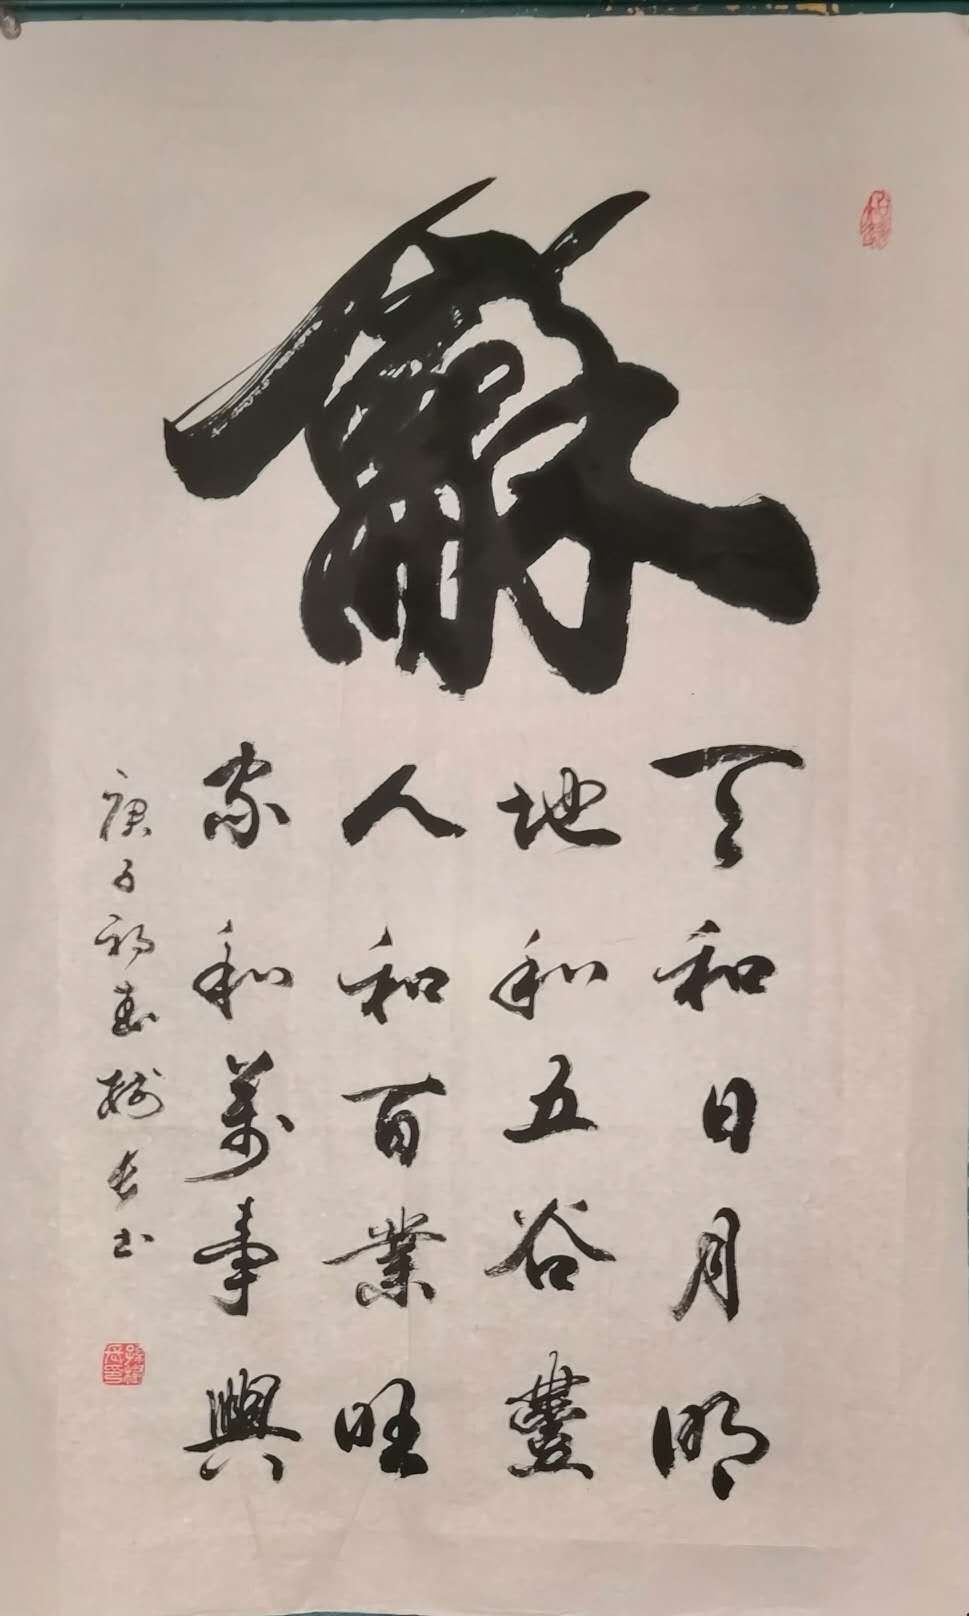 龢
天和日月明
地和五谷豐
人和百業旺
家和萬事興
庚子初春樹長书